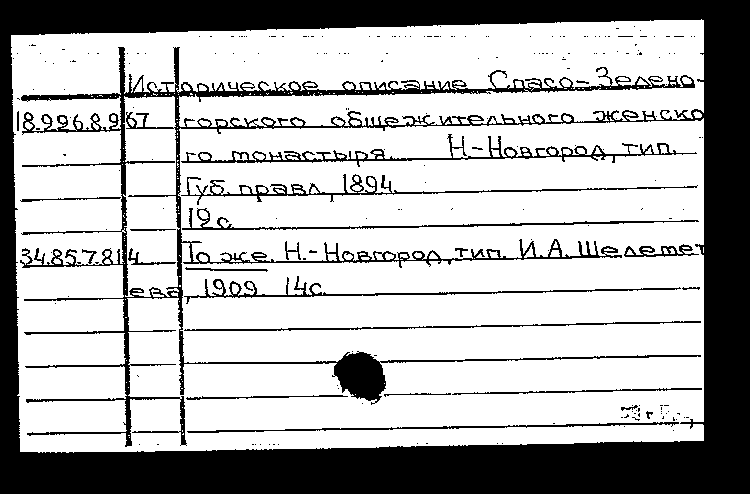 Историческое описание Спасо-Зелено-
18.996.8.9 67 горского общежительного женско
го монастыря. Н.-Новгород, тип.
Губ. правл., 1894.
19с.
34.85.7.81 4 То же. Н.-Новгород, тип. И.А. Шелемет
ева, 1909. 14с.